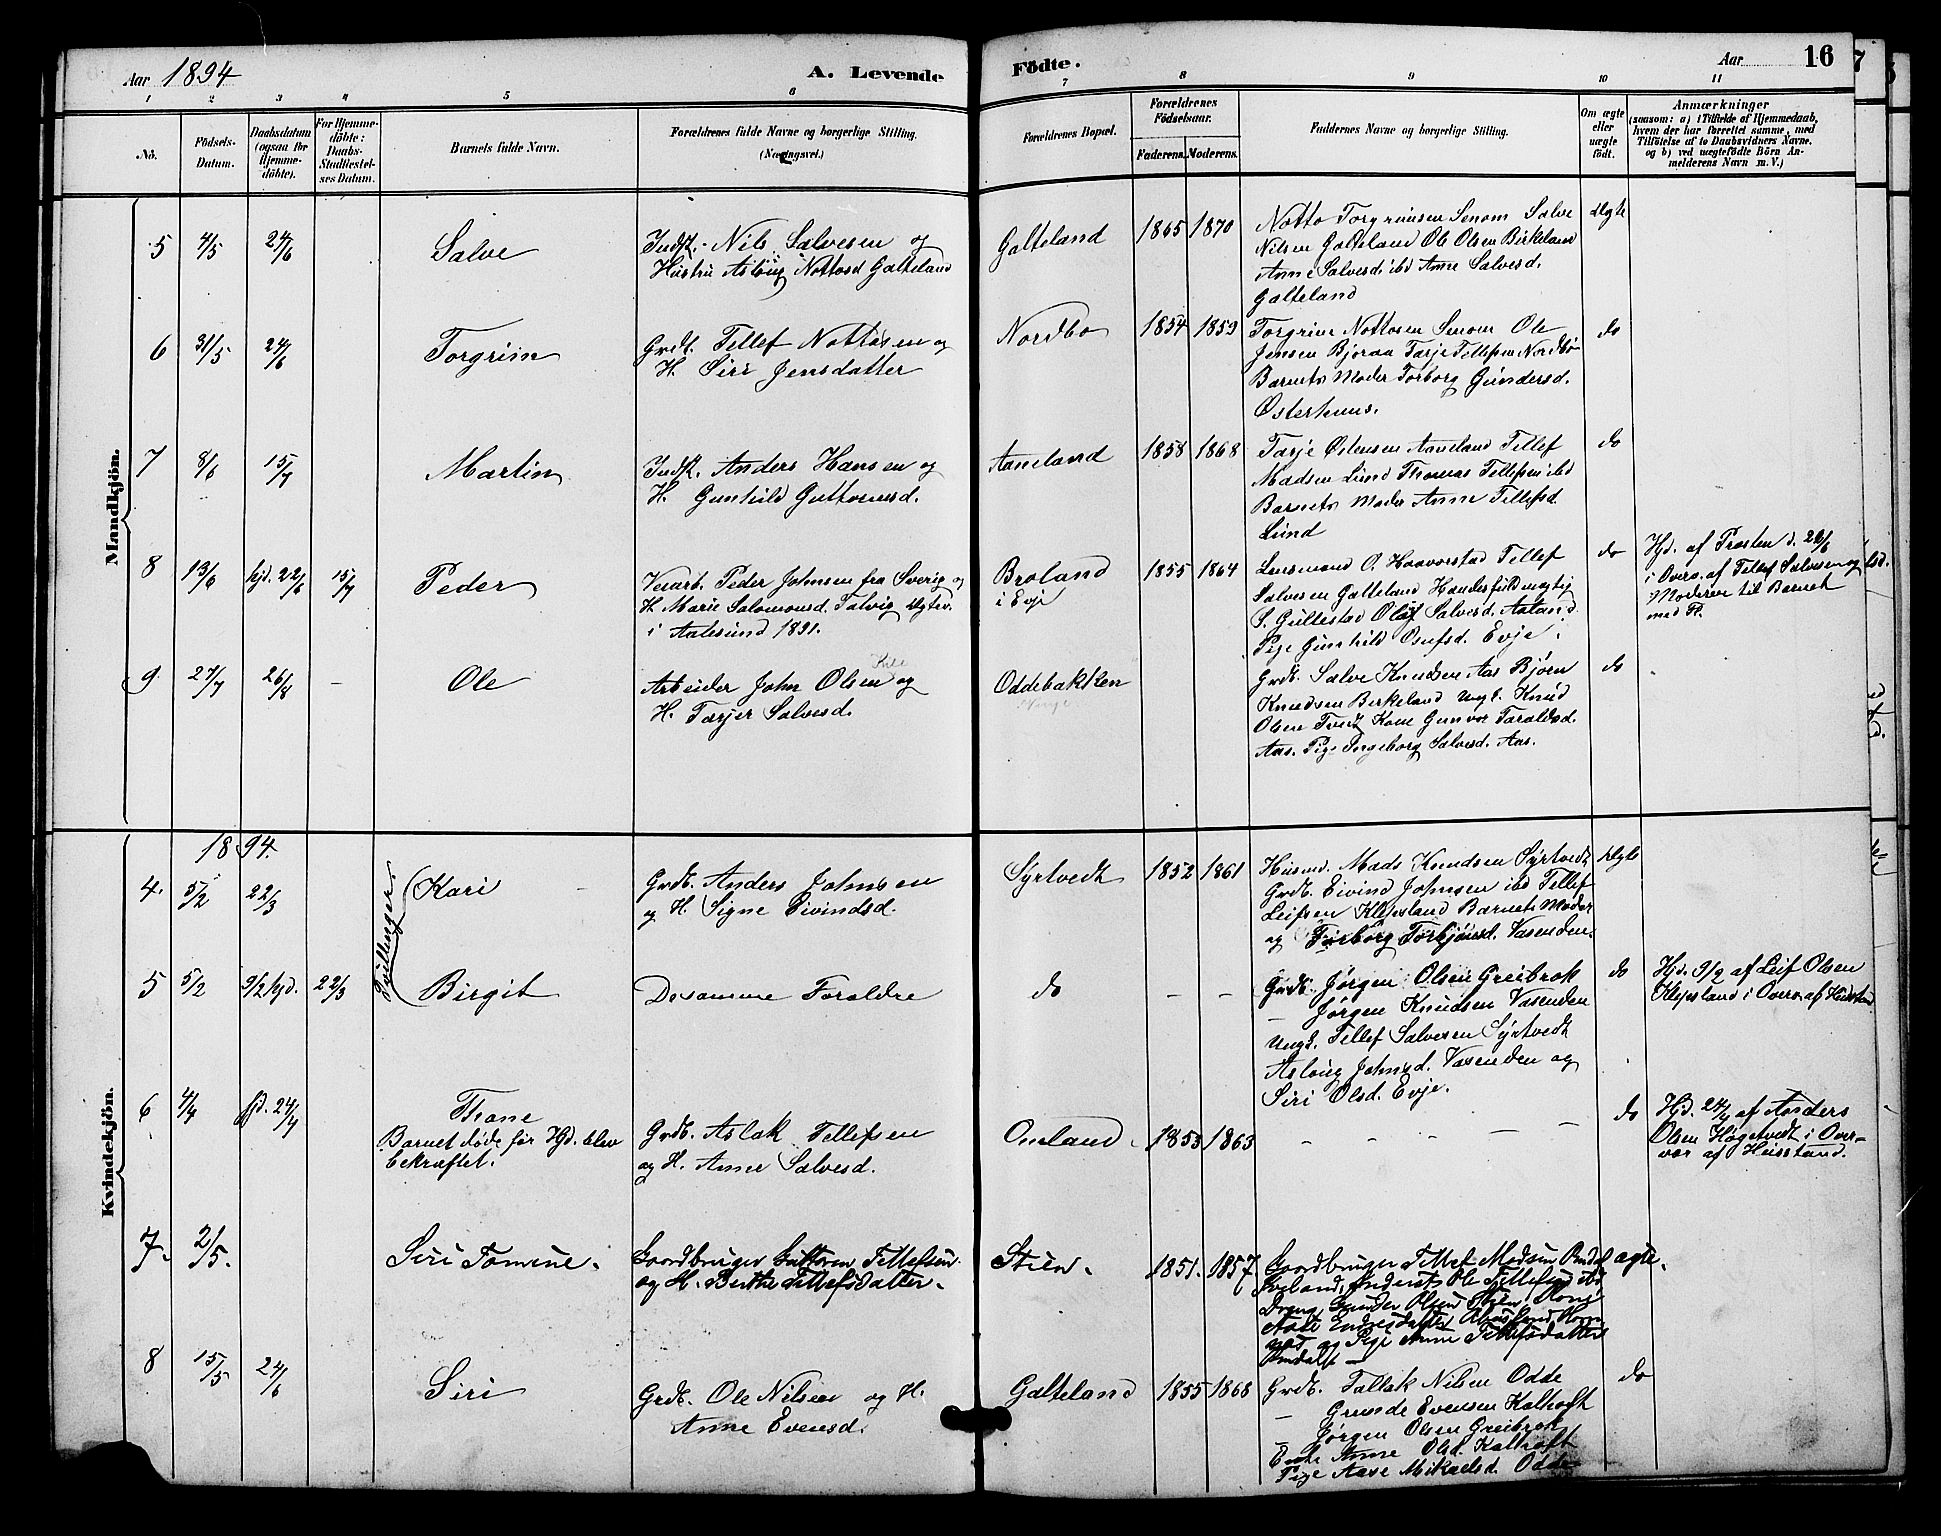 Aar 1894
A. Levende
Födte.
Aar
16
1 2 3 4 5 6 7 8 9 10 11
No.
Födsels-
Datum.
Daabsdatum
(ogsaa for
Hjemme-
döbte).
For Hjemme-
döbte:
Daabs-
Stadfæstel-
ses Datum.
Barnets fulde Navn.
Forældrenes fulde Navne og borgerlige Stilling.
(Næringsvei.)
Forældrenes Bopæl.
Forældrenes
Födselsaar.
Faderens. Moderens.
Faddernes Navne og borgerlige Stilling.
Om ægte
eller
uægte
født.
Anmærkninger
(saasom: a) i Tilfælde af Hjemmedaab,
hvem der har forrettet samme, med
Tilföielse af to Daabsvidners Navne,
og b) ved uægtefödte Börn An-
melderens Navn m. V.)
Mandkjön.
5 4/5 24/6
Salve
Indst. Nils Salvesen og
Hustru Aslöug Nottosd Galteland
Galteland
1865 1870
Notto Torgrimsen Senom Salve
Nilsen Galteland Ole Olsen Birkeland
Anne Salvesd. ibd Anne Salvesd.
Galteland
Ægte
6 31/5 24/6
Torgrim
Grdb. Tellef Nottosen og
H. Siri Jensdatter
Nordbø
1854 1859
Torgrim Nottosen Senom Ole
Jensen Bjoraa Tarje Tellefsen Nordbö
Barnets Moder Torborg Gundersd.
Østerhuus.
do
7 8/6 15/7
Martin
Indst. Anders Hansen og
H. Gunhild Guttormsd.
Aaneland
1858 1868
Tarje Østensen Aaneland Tellef
Madsen Lund Thomas Tellefsen ibd
Barnets Moder Anne Tellefsd.
Lund
do
8 13/6 hjd. 22/6 15/7
Peder
Veiarb. Peder Johnsen fra Sverig og
H. Marie Salomonsd. Talvig Ægtev.
i Aalesund 1891.
Broland
i Evje
1855 1864
Lensmand O. Haavorstad Tellef
Salvesen Galteland Handelsfuldmægtig
S. Gullestad Olaf Salvesd. Aaland
Pige Gunhild Osufsd. Evje
do
Hjd. af Presten d. 22/6
i Overv. af Tellef Salvesen og
Moderen til Barnet
med Fl.
9 27/7 26/8 –
Ole
Arbeider John Olsen og
H. Tarjer Salvesd.
Oddebakken
Grdb. Salve Knudsen Aas Bjørn
Knudsen Birkeland Ungk. Knud
Olsen Tveit Kone Gunvor Taraldsd.
Aas. Pige Ingeborg Salvesd. Aas.
do
Kvindekjön.
1894.
4. 5/2 22/3
Tvillinger.
Kari
Grdb. Anders Johnsen
og H. Signe Eivindsd.
Syrtvedt
1852 1861
Husmd. Mads Knudsen Syrtvedt
Grdb. Eivind Johnsen ibd Tellef
Leifsen Klepsland Barnets Moder
og Torborg Torbjörnsd. Vasenden.
Ægte
5 5/2 9/2 hjd. 22/3
Birgit
Desamme Foraldre
do
– –
Grdb. Jørgen Olsen Greibrok
– Jørgen Knudsen Vasenden
Ungk. Tellef Salvesen Syrtvedt
Aslöug Johnsd. Vasenden og
Siri Olsd. Evje.
do
Hjd. 9/2 af Leif Olsen
Klepsland i Overv. af Husstand
6 4/4 hjd. 24/4
Thone
Barnet døde før Hjd. blev
bekræftet.
Grdb. Aslak Tellefsen
og H. Anne Salvesd.
Omland
1853 1863
– – – – – –
do
Hjd. 24/4 af Anders
Olsen Høgetvedt i Over-
vær af Husstand.
7. 2/5.
Siri Tomine.
Gaardbruger Guttorm Tellefsen
og H. Berthe Tellefsdatter.
Stien.
1851. 1857
Gaardbruger Tellef Madsen
Iveland, Inderst Ole Tellefsen ibd
Dreng Gunder Olsen Stien, Kone
Aase Endresdatter
og Pige Anne Tellefsdatter
ægte.
8 15/5 24/6
Siri
Grdb. Ole Nilsen og H.
Anne Evensd.
Galteland
1855 1868
Grdb. Tallak Nilsen Odde
– Grunde Evensen Kalhoft
– Jørgen Olsen Greibrok
Enke Anne Olsd. Kalhoft
Pige Aase Mikaelsd. Odde
do